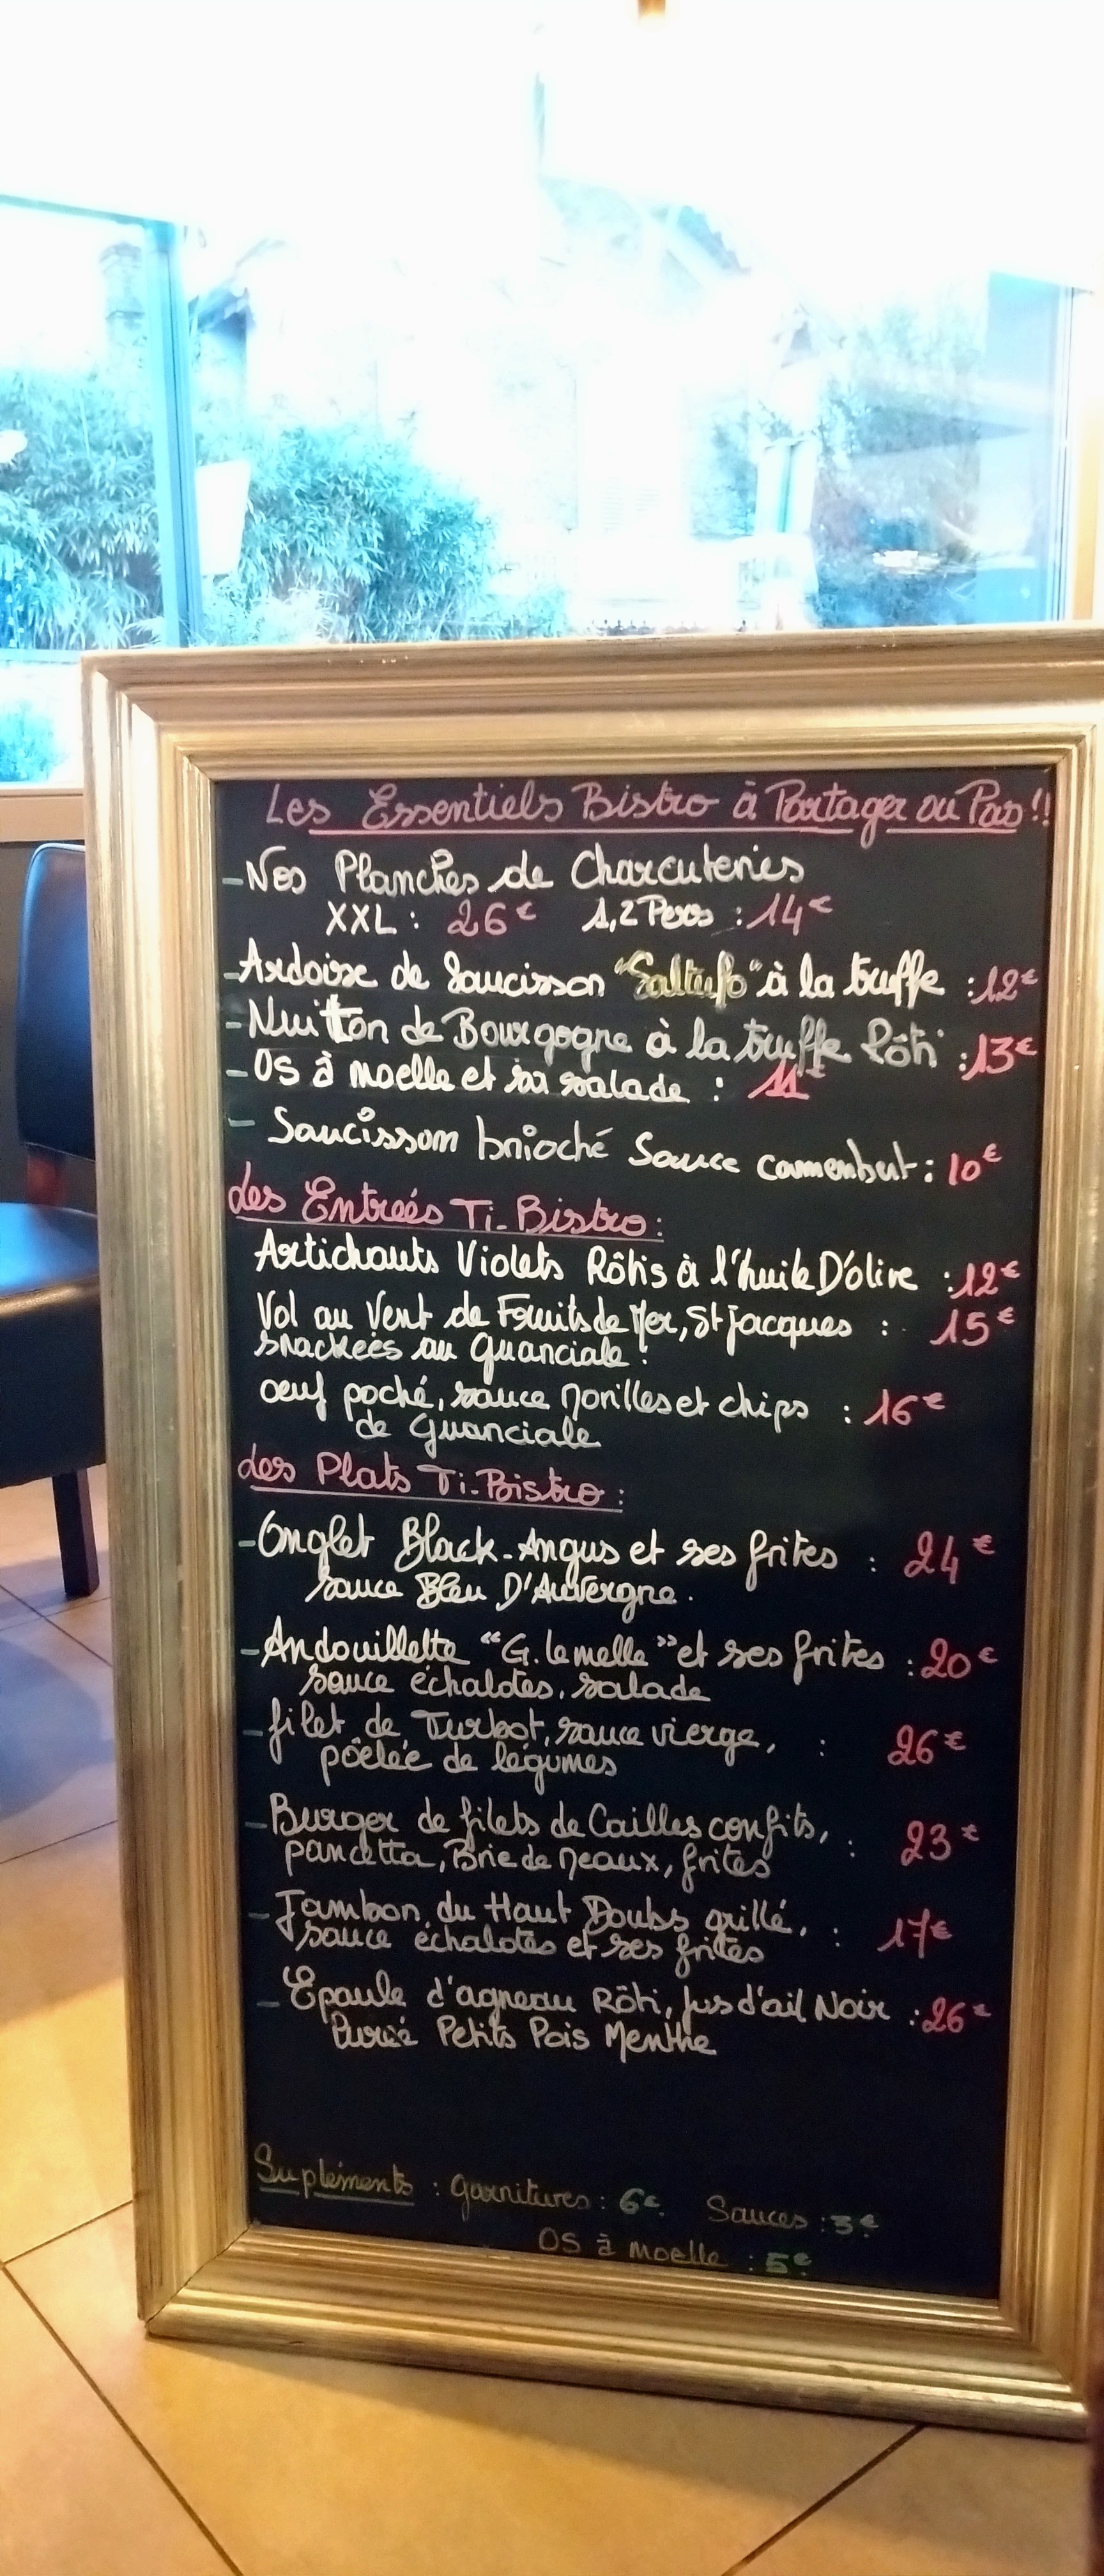 Les Essentiels Bistro à Partager ou Pas !!
- Nos Planches de Charcuteries
XXL : 26€ 1,2 Pers : 14€
- Ardoise de Saucisson "Saltufo" à la truffe : 12€
- Nuitton de Bourgogne à la truffe Rôti : 13€
- OS à moelle et sa salade : 11€
- Saucisson brioché Sauce camembert : 10€
Les Entreés Ti-Bistro :
Artichauts Violets Rôtis à l'huile D'olive : 12€
Vol au Vent de Fruits de Mer, St Jacques : 15€
snackées au Guanciale !
oeuf poché, sauce Morilles et chips : 16€
de Guanciale
Les Plats Ti-Bistro :
- Onglet Black-Angus et ses frites : 24€
sauce Bleu D'Auvergne.
- Andouillette "G. lemelle" et ses frites : 20€
sauce échalotes, salade
- filet de Turbot, sauce vierge, : 26€
pôelée de légumes
- Burger de filets de Cailles confits, : 23€
pancetta, Brie de Meaux, frites
- Jambon du Haut Doubs grillé, : 17€
sauce échalotes et ses frites
- Epaule d'agneau Rôti, jus d'ail Noir : 26€
Purée Petits Pois Menthe
Supléments : Garnitures : 6€ Sauces : 3€
OS à moelle : 5€